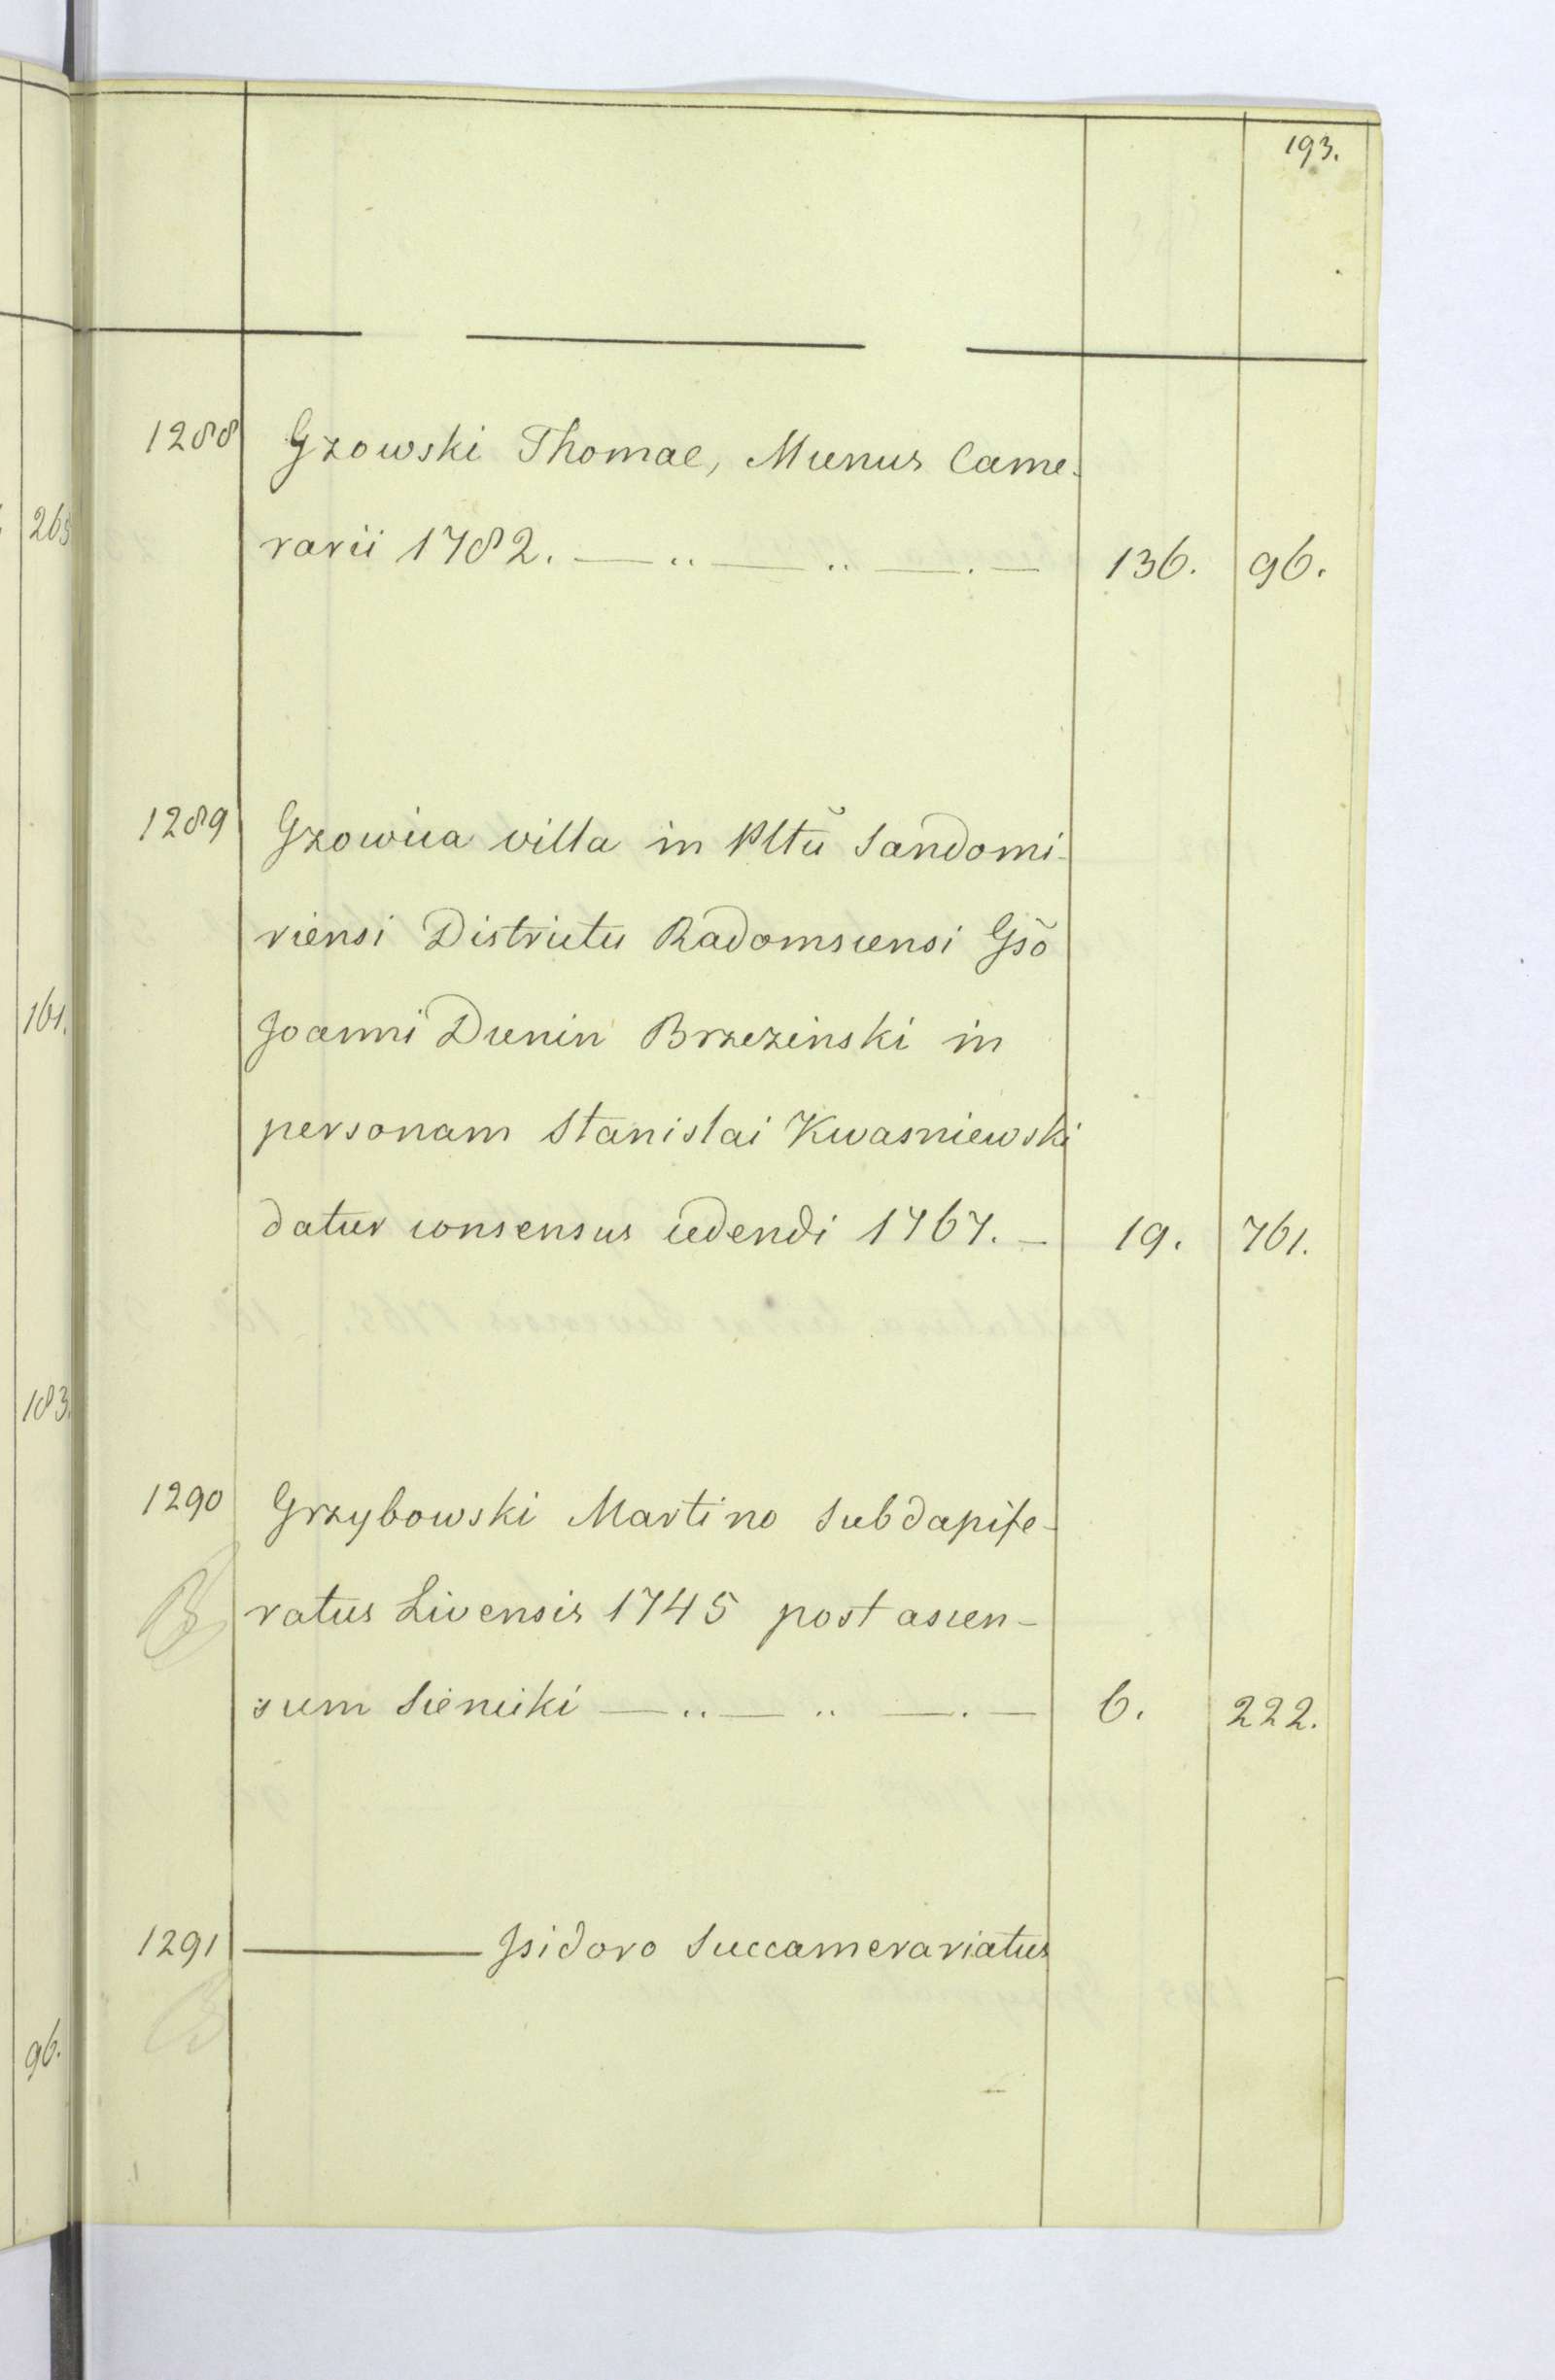 193.
1288 Gzowski Thomae, Munus Came-
rarii 1782. — .. — .. — . — 136. 96.
1289 Gzowica villa in Pltũ Sandomi-
riensi Districtu Radomscensi Gsõ
Joanni Dunin Brzezinski in
personam Stanislai Kwasniewski
datur consensus cedendi 1767. — 19. 761.
1290 Grzybowski Martino Subdapife-
ratus Livensis 1745 post ascen-
sum Sienicki — .. — .. — . — 6. 222.
1291 ——— Isidoro Succamerariatus
265
161.
183.
96.